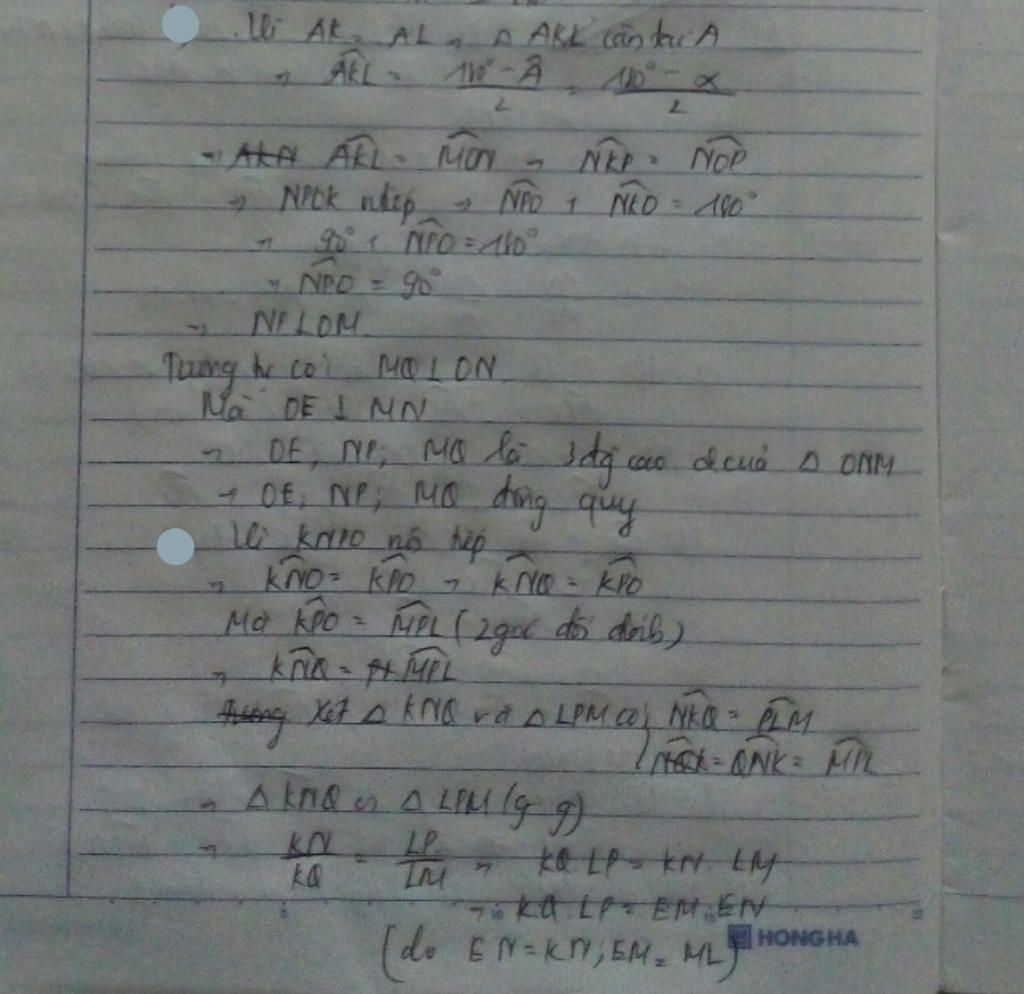 Vì AK = AL → Δ AKL cân tại A
→ AKL = 180° - A / 2 = 180° - α / 2
→ AKL = MON → NKP = NOP
→ NPOK ntiếp → NPO + NKO = 180°
→ 90° + NPO = 180°
→ NPO = 90°
→ NP ⊥ OM
Tương tự có: MQ ⊥ ON
Mà OE ⊥ MN
→ OE, NP; MQ là 3 đg cao của Δ ONM
→ OE, NP; MQ đồng quy
Vì KNPO nội tiếp
→ KNO = KPO → KNQ = KPO
Mà KPO = MPL (2 góc đối đỉnh)
→ KNQ = MPL
Xét Δ KNQ và Δ LPM có { NKQ = PLM
QNK = MPL
→ Δ KNQ ∽ Δ LPM (g g)
→ KN / KQ = LP / LM → KQ . LP = KN . LM
→ KQ . LP = EM . EN
(do EN = KN; EM = ML)
HONG HA